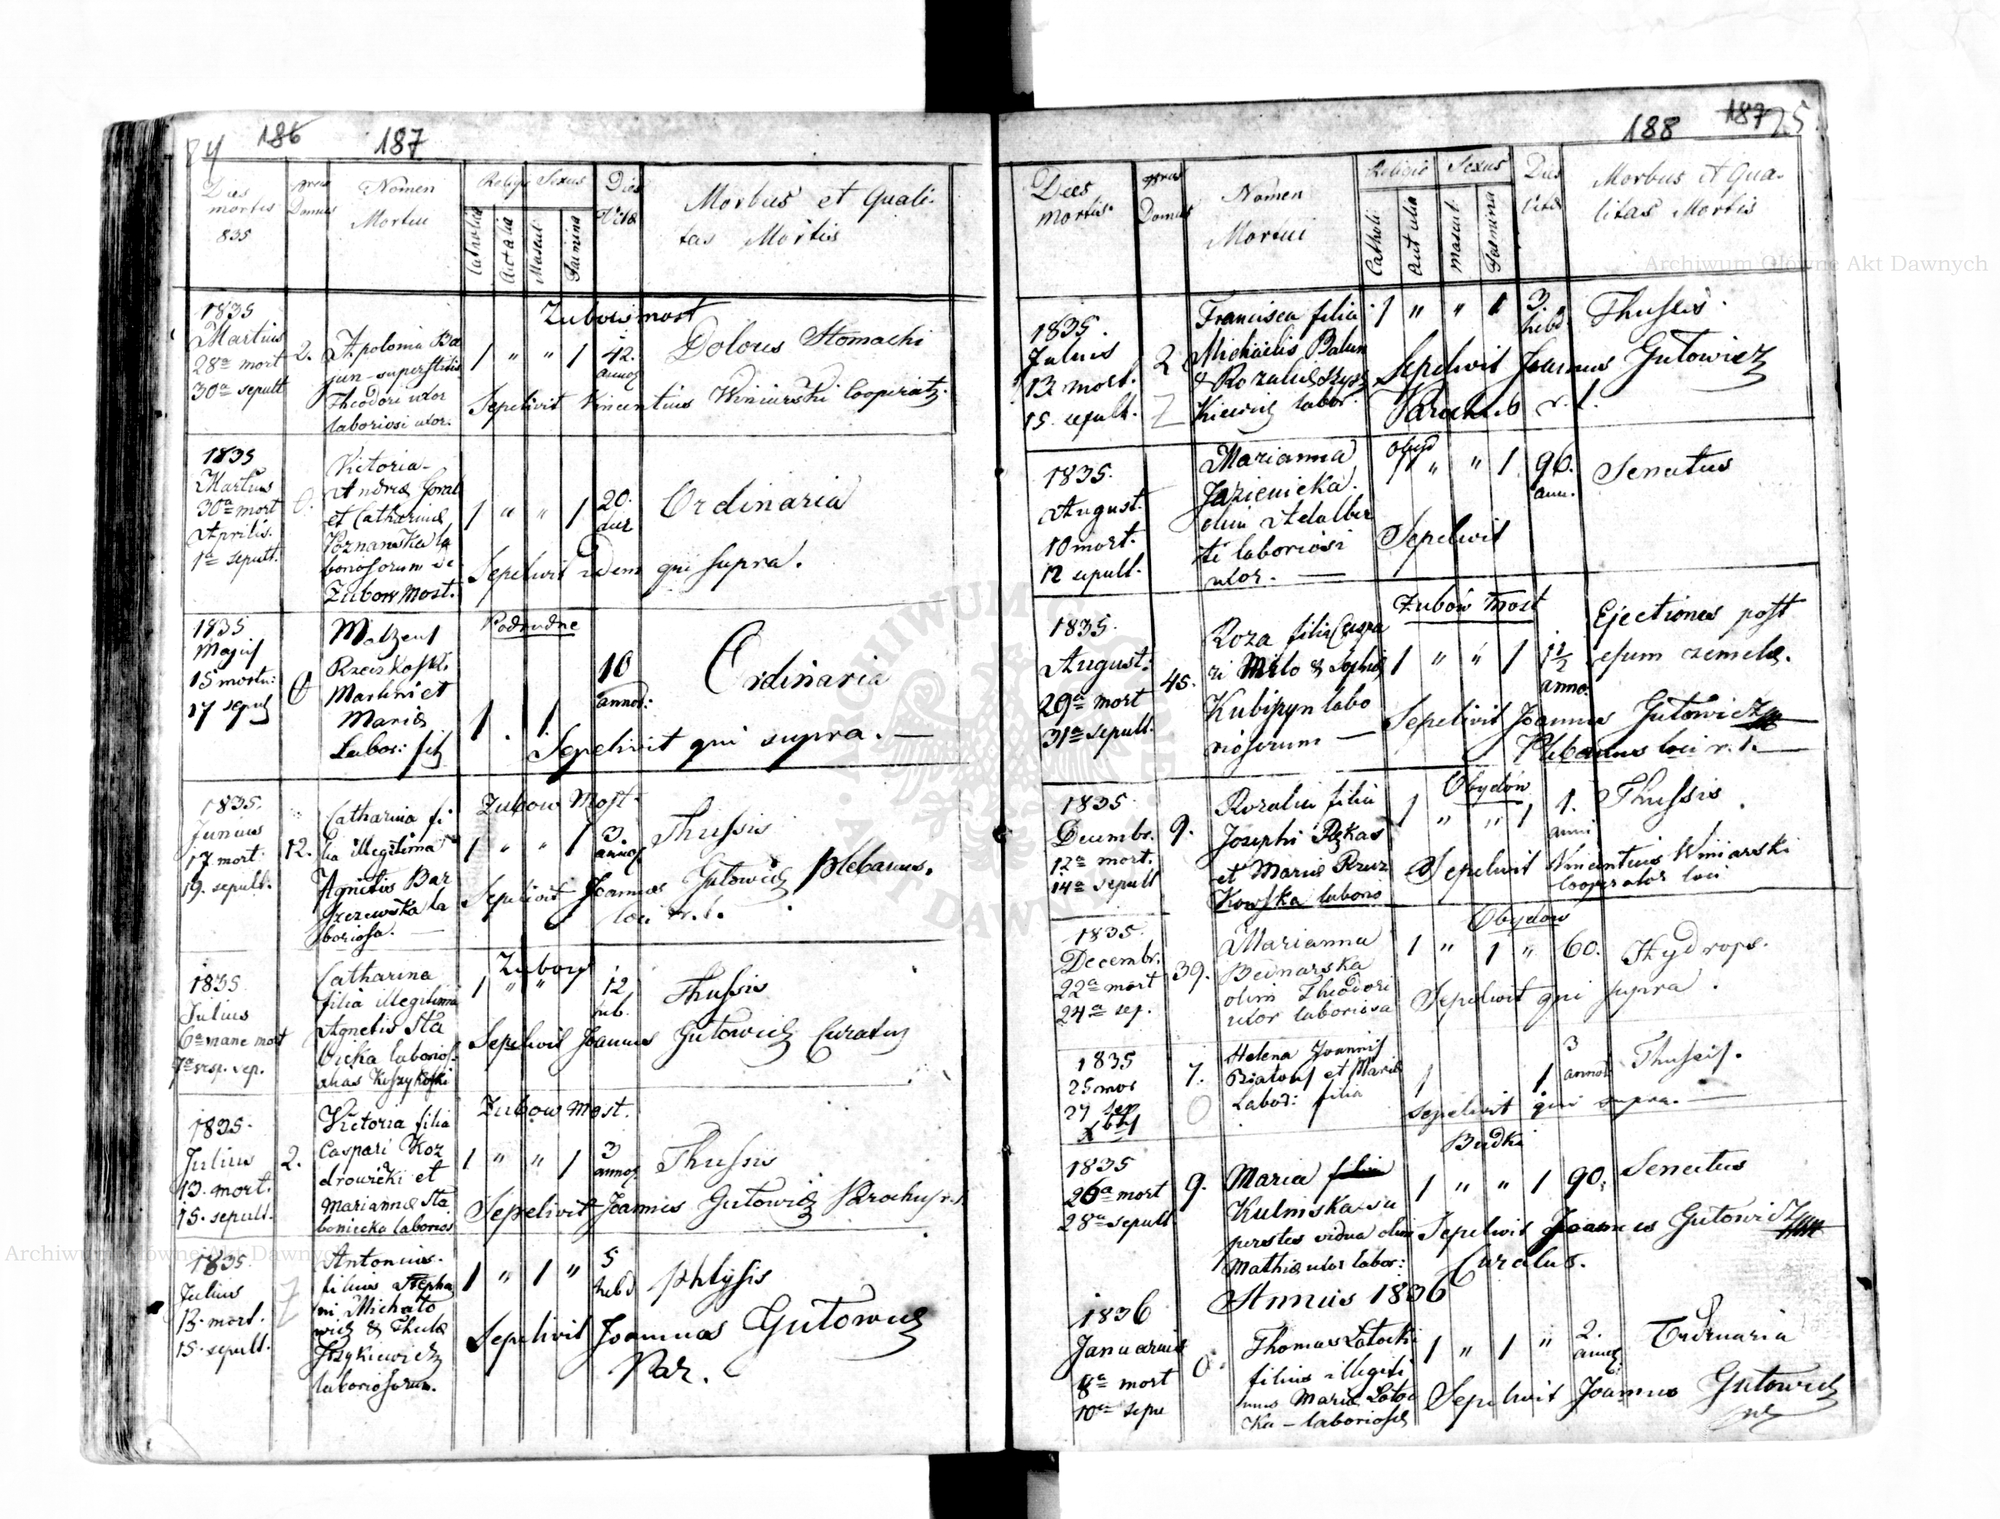 84 186 187
Dies mortis 835
Nrus Domus
Nomen Mortui
Religio Sexus
Catholica
Aut alia
Mascul
Faemina
Dies Vitae
Morbus et Quali-
tas Mortis
Zubowmost
1835
Martius
28a mort
30a sepult
2.
Apolonia Ba
jun superstitis
Theodori uxor
laboriosi uxor.
1 " " 1
42.
annos
Dolores Stomachi
Sepelivit Vincentius Winiarski Cooperat.
1835
Martius
30a mort
Aprilis.
1a sepult.
0.
Victoria
Andreae
et Catharinae
Poznanska la
boriosorum de
Zubow Most.
1 " " 1
20.
dies
Ordinaria
Sepelivit Idem qui supra.
1835
Majus
15 mortu:
17 sepul
0
Podrudne
Martini et
Mariae
Labor: fil
1 . 1
10
annos:
Ordinaria
Sepelivit qui supra. —
1835.
Junius
17 mort:
19. sepult.
12.
Zubow Most.
Catharina fi
lia illegitima
Agnetis Bar
szczewska la
boriosa.
1 " " 1
3
annos
Thussis
Sepelivit Joannes Gutowicz plebanus.
loci r. l.
1835.
Julius
6a mane mort
7a vesp. sep.
2
Zubow
Catharina
filia illegitima
Agnetis Sta
laborios.
alias
1 " " 1
12
heb.
Thussis
Sepelivit Joannes Gutowicz Curatus
1835.
Julius
13. mort.
15. sepult.
2.
Zubow Most.
Victoria filia
Caspari Koz
drowicki et
Mariannae Sta
bonicka laborios
1 " " 1
3
annos
Thussis
Sepelivit Joannes Gutowicz Parochus r. l.
1835.
Julius
13. mort.
15. sepult.
7
Antonius
filius Stepha
ni Michalo
wicz & Theclae
Iszykiewicz
laboriosorum.
1 " 1 "
5
hebd
phtysis
Sepelivit Joannes Gutowicz
Par.
188 187 25
Dies mortis.
Nrus Domus
Nomen Mortui
Religio Sexus
Catholi
Aut alia
Mascul
Faemina
Dies Vitae
Morbus et Qua-
litas Mortis
1835.
Julius
13 mort.
15. sepult.
2
Francisca filia
Michaelis Balun
& Rozaliae Iszys
Kiewicz labor.
1 " " 1
3.
hebd.
Thussis.
Sepelivit Joannes Gutowicz
Paroch r. l.
1835.
August.
10 mort.
12 sepult.
Obyd
Marianna
Jazienicka.
olim Adalber
ti laboriosi
uxor. —
1 " " 1
96.
ann.
Senectus
Sepelivit
1835.
August.
29a mort
31a sepult.
45.
Zubow Most
Roza filia Caspa
ri Milo & Sophiae
Kubiszyn labo
riosorum —
1 " " 1
1 1/2
anno.
Ejectiones post
esum zemelae.
Sepelivit Joannes Gutowicz
Plebanus loci r. l. —
1835
Decembr.
12a mort.
14a sepult
9.
Obydów
Rozalia filia
Josephi Rękas
et Mariae Rzuz
Kowska laborio
1 " " 1
1.
anni
Thussis
Sepelivit Vincentius Winiarski
Cooperator loci
1835.
Decembr.
22a mort
24a sep.
39.
Obydow
Marianna
Bednarska
olim Theodori
uxor laboriosa
1 " 1 "
60.
Hydrops.
Sepelivit qui supra.
1835
25 mor
27 sep
Xbris
7.
0
Helena Joannis
et Mariae
Labor: filia
1 1
3
annos
Thussis.
Sepelivit qui supra. —
1835
26a mort
28a sepult
9.
Budki
Maria
Kulniska su
perstes vidua olim
Mathiae uxor labor:
1 " " 1
90.
Senectus
Sepelivit Joannes Gutowicz
Curatus.
Annus 1836
1836
Januarius
8a mort
10a sepu
0.
Thomas Latocki
filius illegiti
mus Mariae Lato
Ka — laboriosae
1 " 1 "
2.
annos
Ordinaria
Sepelivit Joannes Gutowicz
Archiwum Główne Akt Dawnych
Archiwum Główne Akt Dawnych
ARCHIWUM GŁÓWNE AKT DAWNYCH